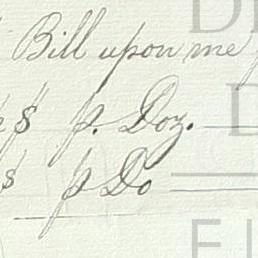 Bill upon me
$ p. Doz.
$ p Do